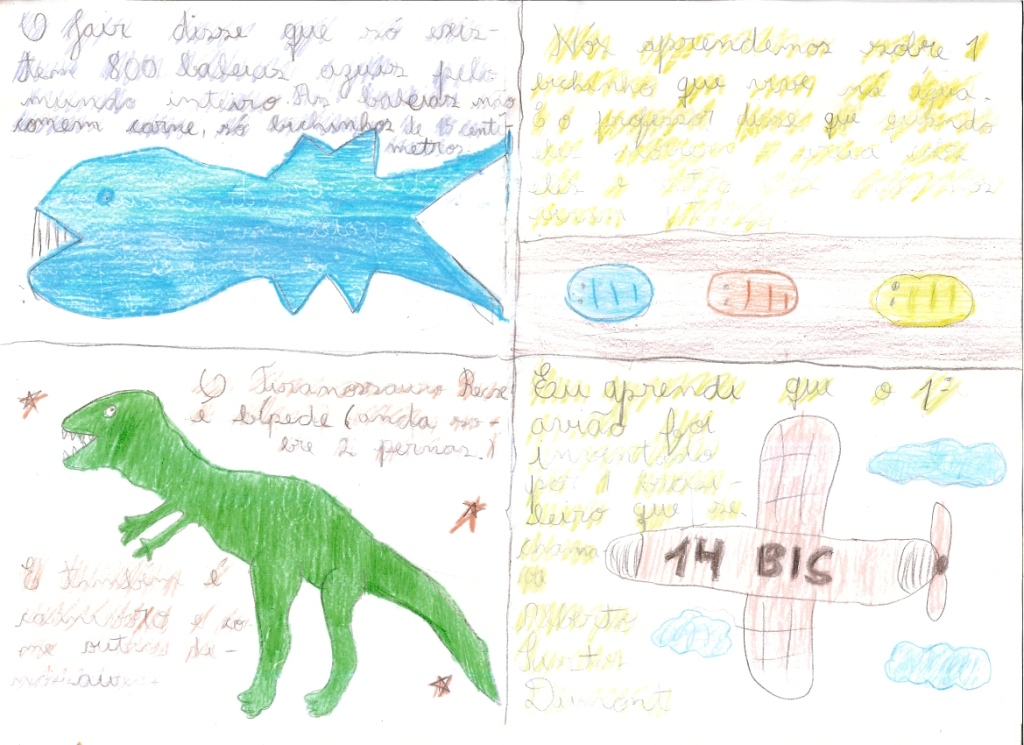 O Jair disse que só exis-
tem 800 baleias azuis pelo
mundo inteiro. As baleias não
comem carne, só bichinhos de 15 centí
metros.
Nós aprendemos sobre 1
bichinho que vive na água.
E o professor disse que quando
eles
eles e
O Tiranossauro Rex
é bípede (anda so-
bre 2 pernas.)
E também é
carnívoro e co-
me outros di-
nossauros.
Eu aprendi que o 1º
avião foi
inventado
por 1 brasi-
leiro que se
chama
va
Alberto
Santos
Dumont
14 BIS